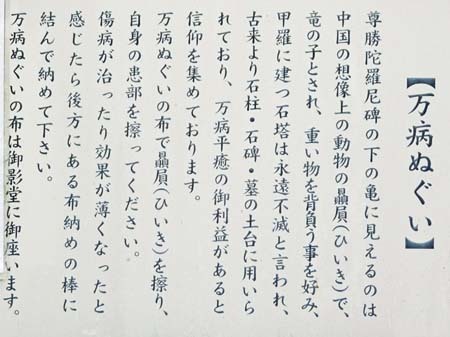 【万病ぬぐい】
尊勝陀羅尼碑の下の亀に見えるのは
中国の想像上の動物の贔屓(ひいき)で、
竜の子とされ、重い物を背負う事を好み、
甲羅に建つ石塔は永遠不滅と言われ、
古来より石柱・石碑・墓の土台に用いら
れており、万病平癒の御利益があると
信仰を集めております。
万病ぬぐいの布で贔屓(ひいき)を擦り、
自身の患部を擦ってください。
傷病が治ったり効果が薄くなったと
感じたら後方にある布納めの棒に
結んで納めて下さい。
万病ぬぐいの布は御影堂に御座います。